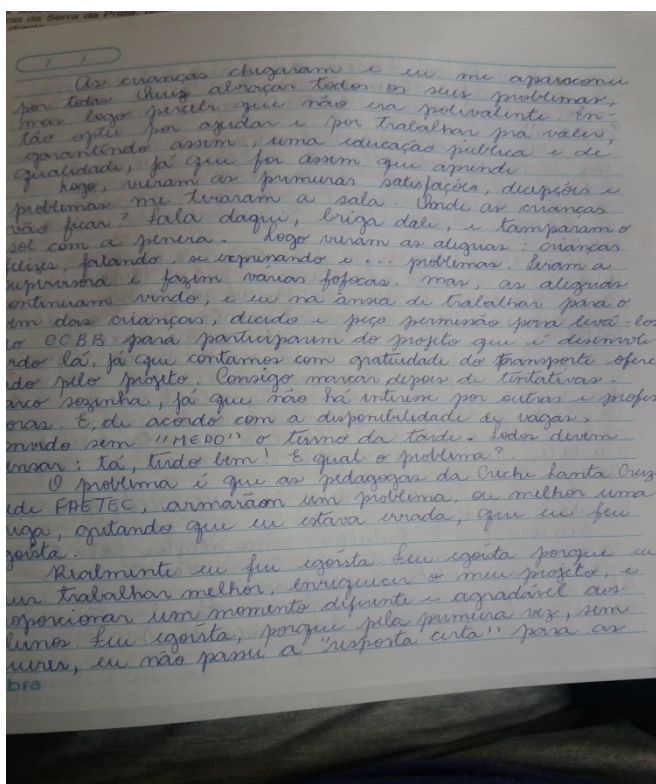 cia da Serra da Prata.
As crianças chegaram e eu me apaixonei
por todas. Quis abraçar todos os seus problemas,
mas logo percebi que não era polivalente. En-
tão optei por ajudar e por trabalhar pra valer,
garantindo assim, uma educação pública e de
qualidade, já que foi assim que aprendi.
Logo, vieram as primeiras satisfações, decepções e
problemas me tiraram a sala. Onde as crianças
vão ficar? Fala daqui, briga dali, e tamparam o
sol com a peneira. Logo vieram as alegrias: crianças
felizes, falando, se expressando e ... problemas. Seram a
supervisora e fazem várias fofocas. Mas, as alegrias
continuram vindo, e eu na ânsia de trabalhar para o
em das crianças, decido e peço permissão para levá-los
o CCBB para participarem do projeto que é desenvol
ido lá, já que contamos com gratuidade do transporte ofere
ido pelo projeto. Consigo marcar depois de tentativas.
arco sozinha, já que não há interesse por outras e profes
oras. E, de acordo com a disponibilidade de vagas,
onvido sem "MEDO" o turno da tarde. Todos devem
ensar: tá, tudo bem! E qual o problema?
O problema é que as pedagogas da Creche Santa Cruz
ede FAETEC, armarãon um problema, ou melhor uma
iga, gritando que eu estava errada, que eu fui
goísta.
Realmente eu fui egoísta. Fui egoísta porque eu
uis trabalhar melhor, enriquecer o meu projeto, e
oporcionar um momento diferente e agradável aos
lunos. Fui egoísta, porque pela primeira vez, sem
uerer, eu não passei a "resposta certa" para as
bra